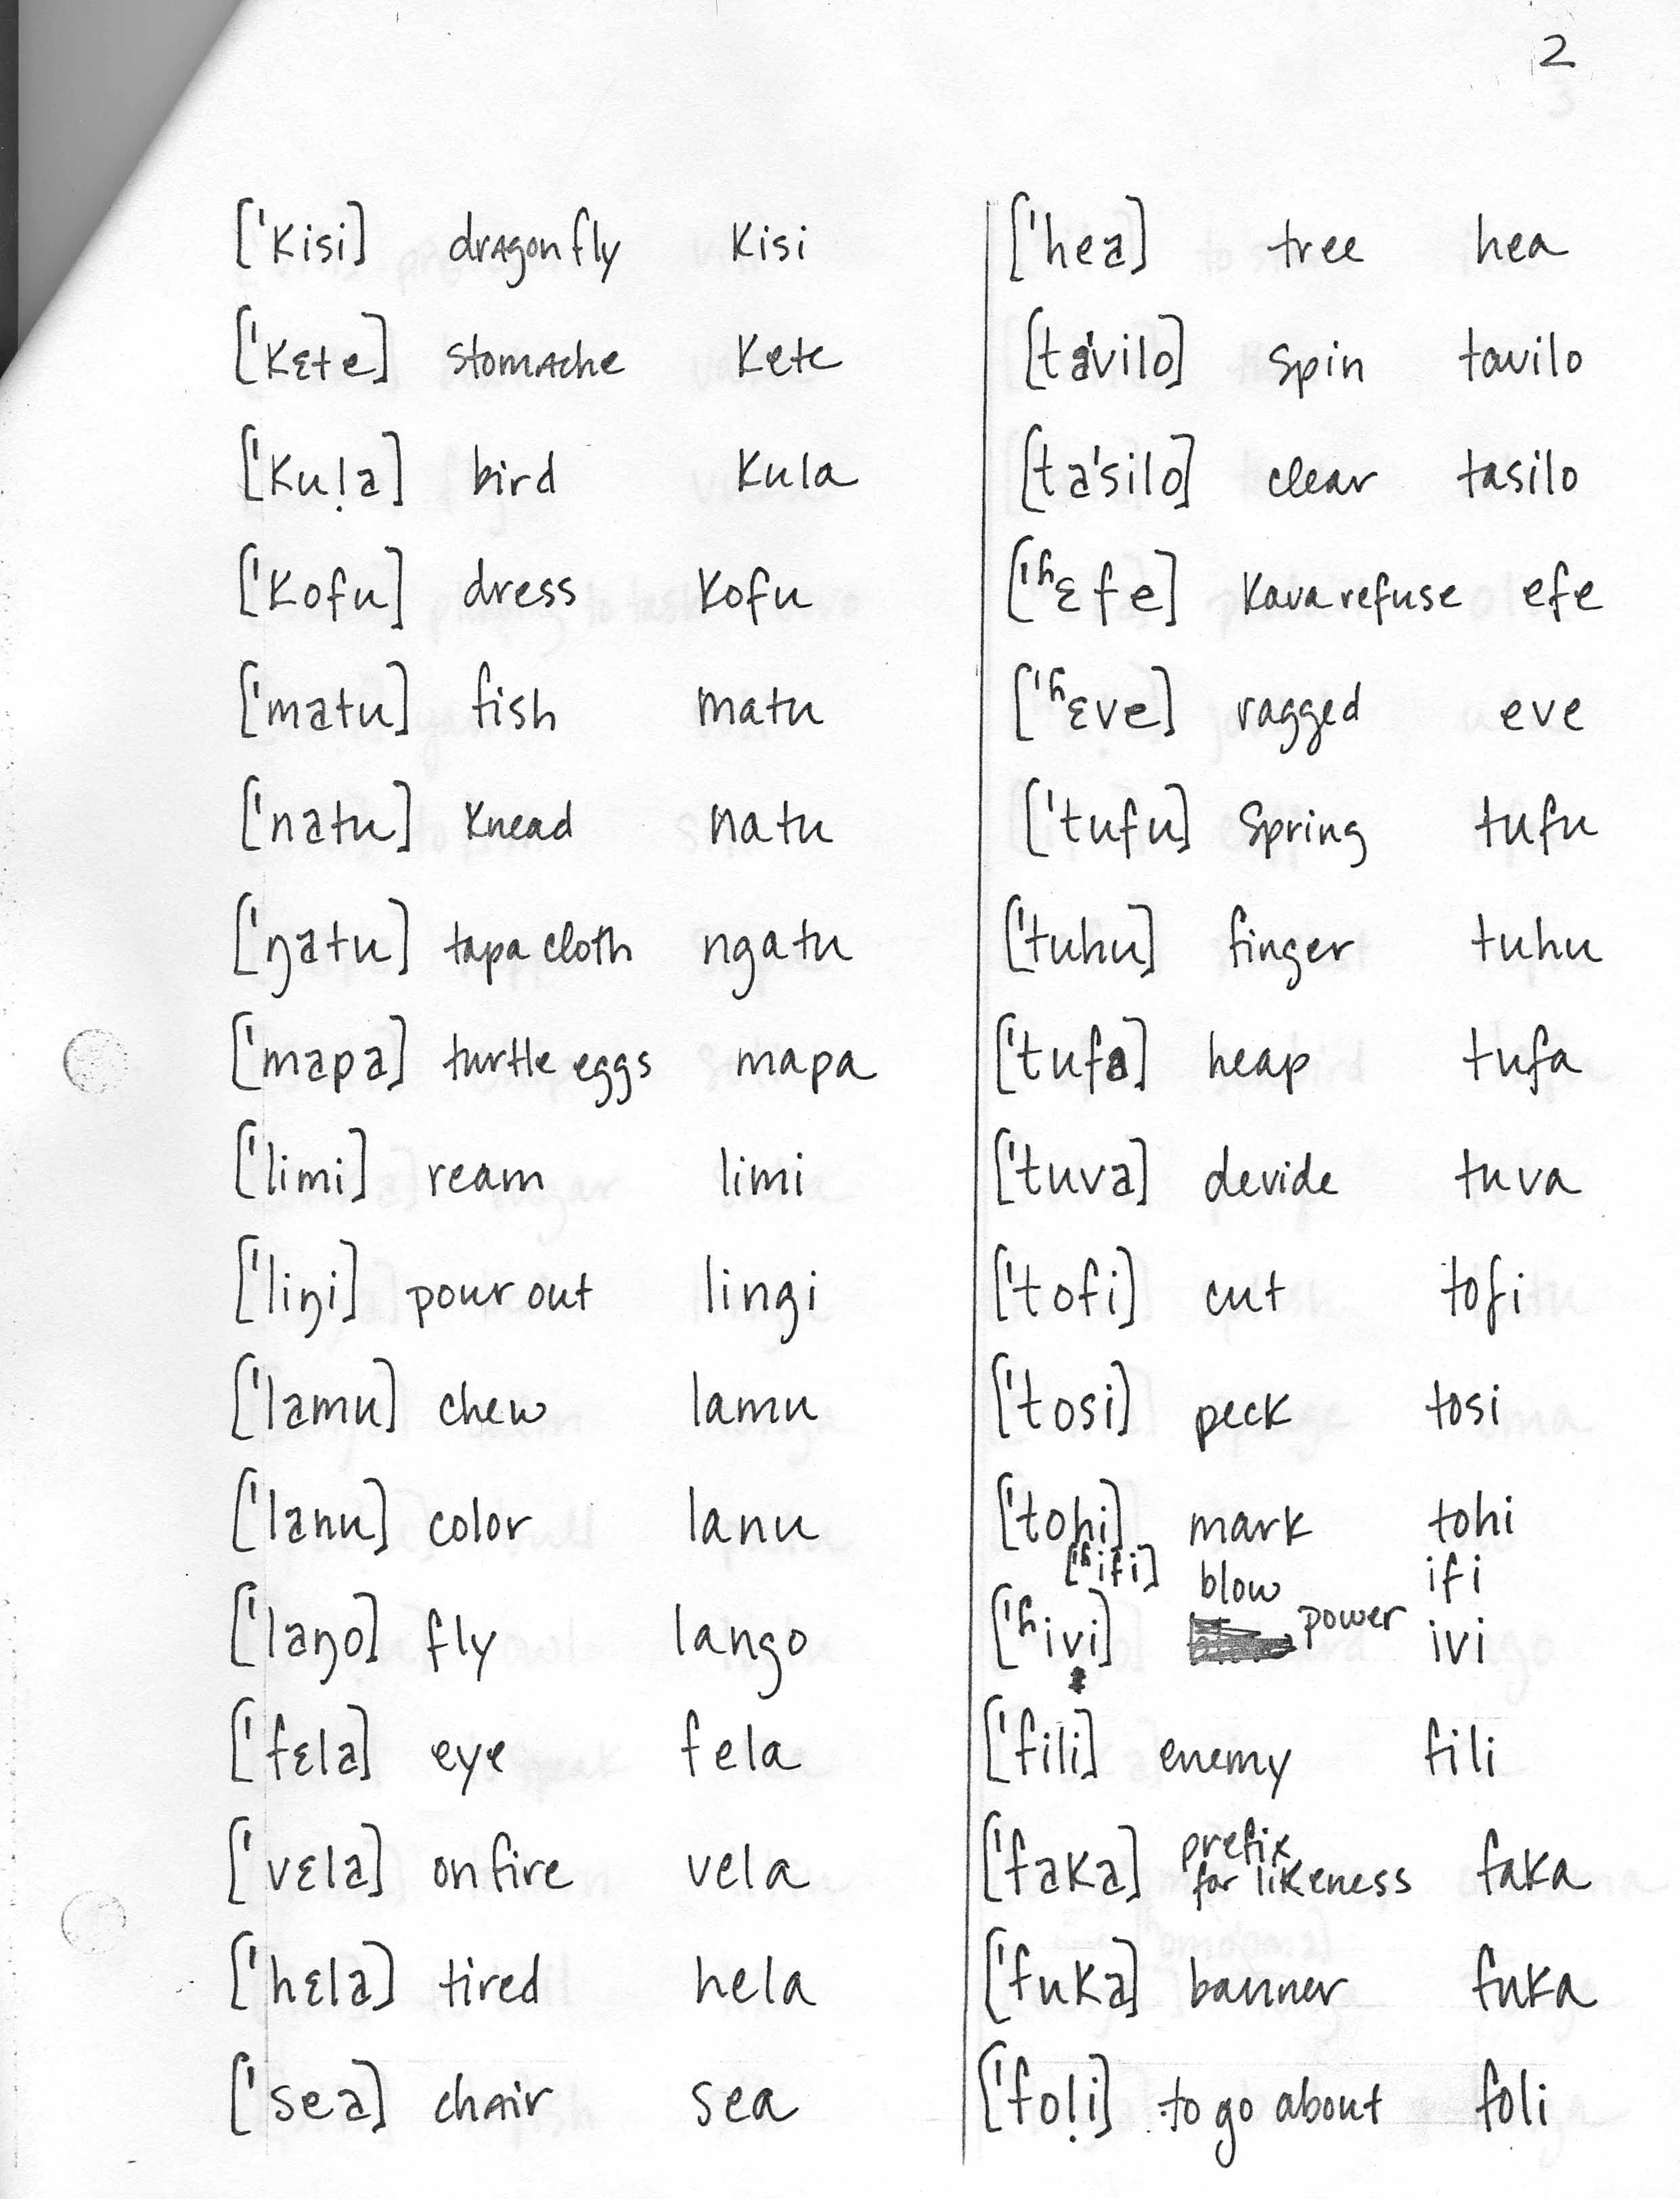 2
['kisi] dragonfly kisi
['kɛte] stomache kete
['kuḷa] bird kula
['kofu] dress kofu
['matu] fish matu
['natu] knead natu
['ŋatu] tapa cloth ngatu
['mapa] turtle eggs mapa
['limi] ream limi
['liŋi] pour out lingi
['lamu] chew lamu
['lanu] color lanu
['laŋo] fly lango
['fɛla] eye fela
['vɛla] on fire vela
['hɛla] tired hela
['sea] chair sea
['hea] tree hea
[ta'vilo] spin tavilo
[ta'silo] clear tasilo
['ʱɛfe] kava refuse efe
['ʱɛve] ragged eve
['tufu] spring tufu
['tuhu] finger tuhu
['tufa] heap tufa
['tuva] devide tuva
['tofi] cut tofi
['tosi] peck tosi
['tohi] mark tohi
['ʱifi] blow ifi
['ʱivi] power ivi
['fili] enemy fili
['faka] prefix for likeness faka
['fuka] banner fuka
['foḷi] to go about foli